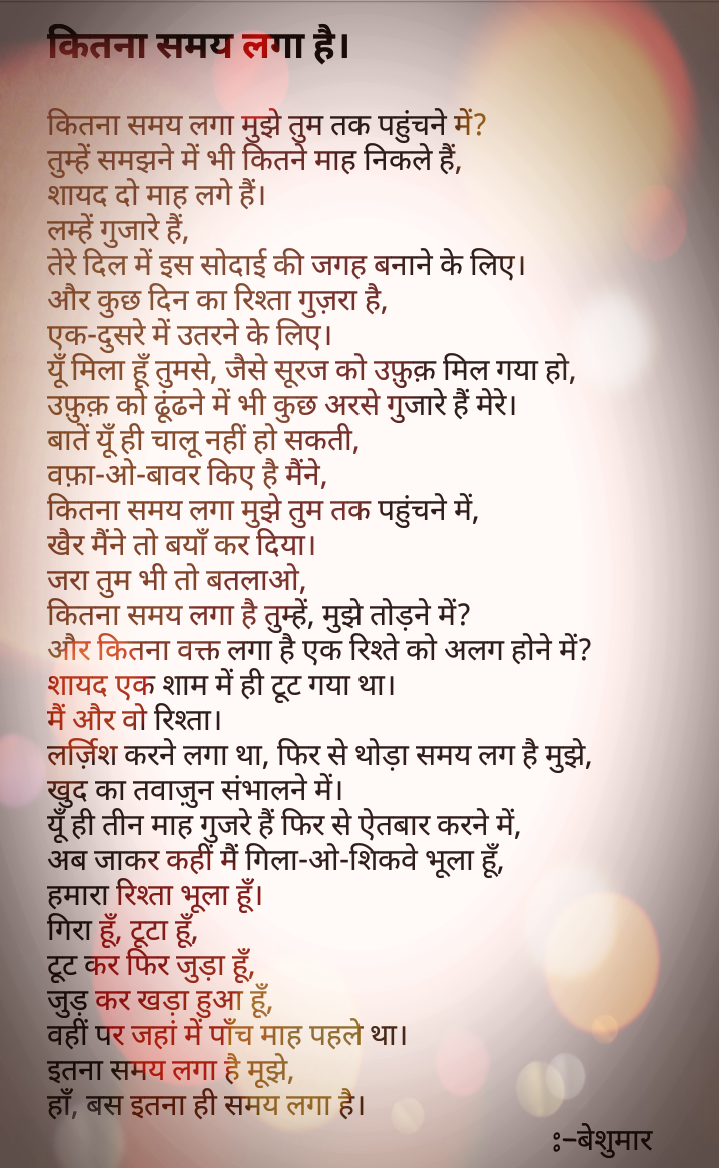 कितना समय लगा है।
कितना समय लगा मुझे तुम तक पहुंचने में?
तुम्हें समझने में भी कितने माह निकले हैं,
शायद दो माह लगे हैं।
लम्हें गुजारे हैं,
तेरे दिल में इस सोदाई की जगह बनाने के लिए।
और कुछ दिन का रिश्ता गुज़रा है,
एक-दुसरे में उतरने के लिए।
यूँ मिला हूँ तुमसे, जैसे सूरज को उफ़ुक़ मिल गया हो,
उफ़ुक़ को ढूंढने में भी कुछ अरसे गुजारे हैं मेरे।
बातें यूँ ही चालू नहीं हो सकती,
वफ़ा-ओ-बावर किए है मैंने,
कितना समय लगा मुझे तुम तक पहुंचने में,
खैर मैंने तो बयाँ कर दिया।
जरा तुम भी तो बतलाओ,
कितना समय लगा है तुम्हें, मुझे तोड़ने में?
और कितना वक्त लगा है एक रिश्ते को अलग होने में?
शायद एक शाम में ही टूट गया था।
मैं और वो रिश्ता।
लर्ज़िश करने लगा था, फिर से थोड़ा समय लग है मुझे,
खुद का तवाज़ुन संभालने में।
यूँ ही तीन माह गुजरे हैं फिर से ऐतबार करने में,
अब जाकर कहीं मैं गिला-ओ-शिकवे भूला हूँ,
हमारा रिश्ता भूला हूँ।
गिरा हूँ, टूटा हूँ,
टूट कर फिर जुड़ा हूँ,
जुड़ कर खड़ा हुआ हूँ,
वहीं पर जहां में पाँच माह पहले था।
इतना समय लगा है मूझे,
हाँ, बस इतना ही समय लगा है।
ः–बेशुमार